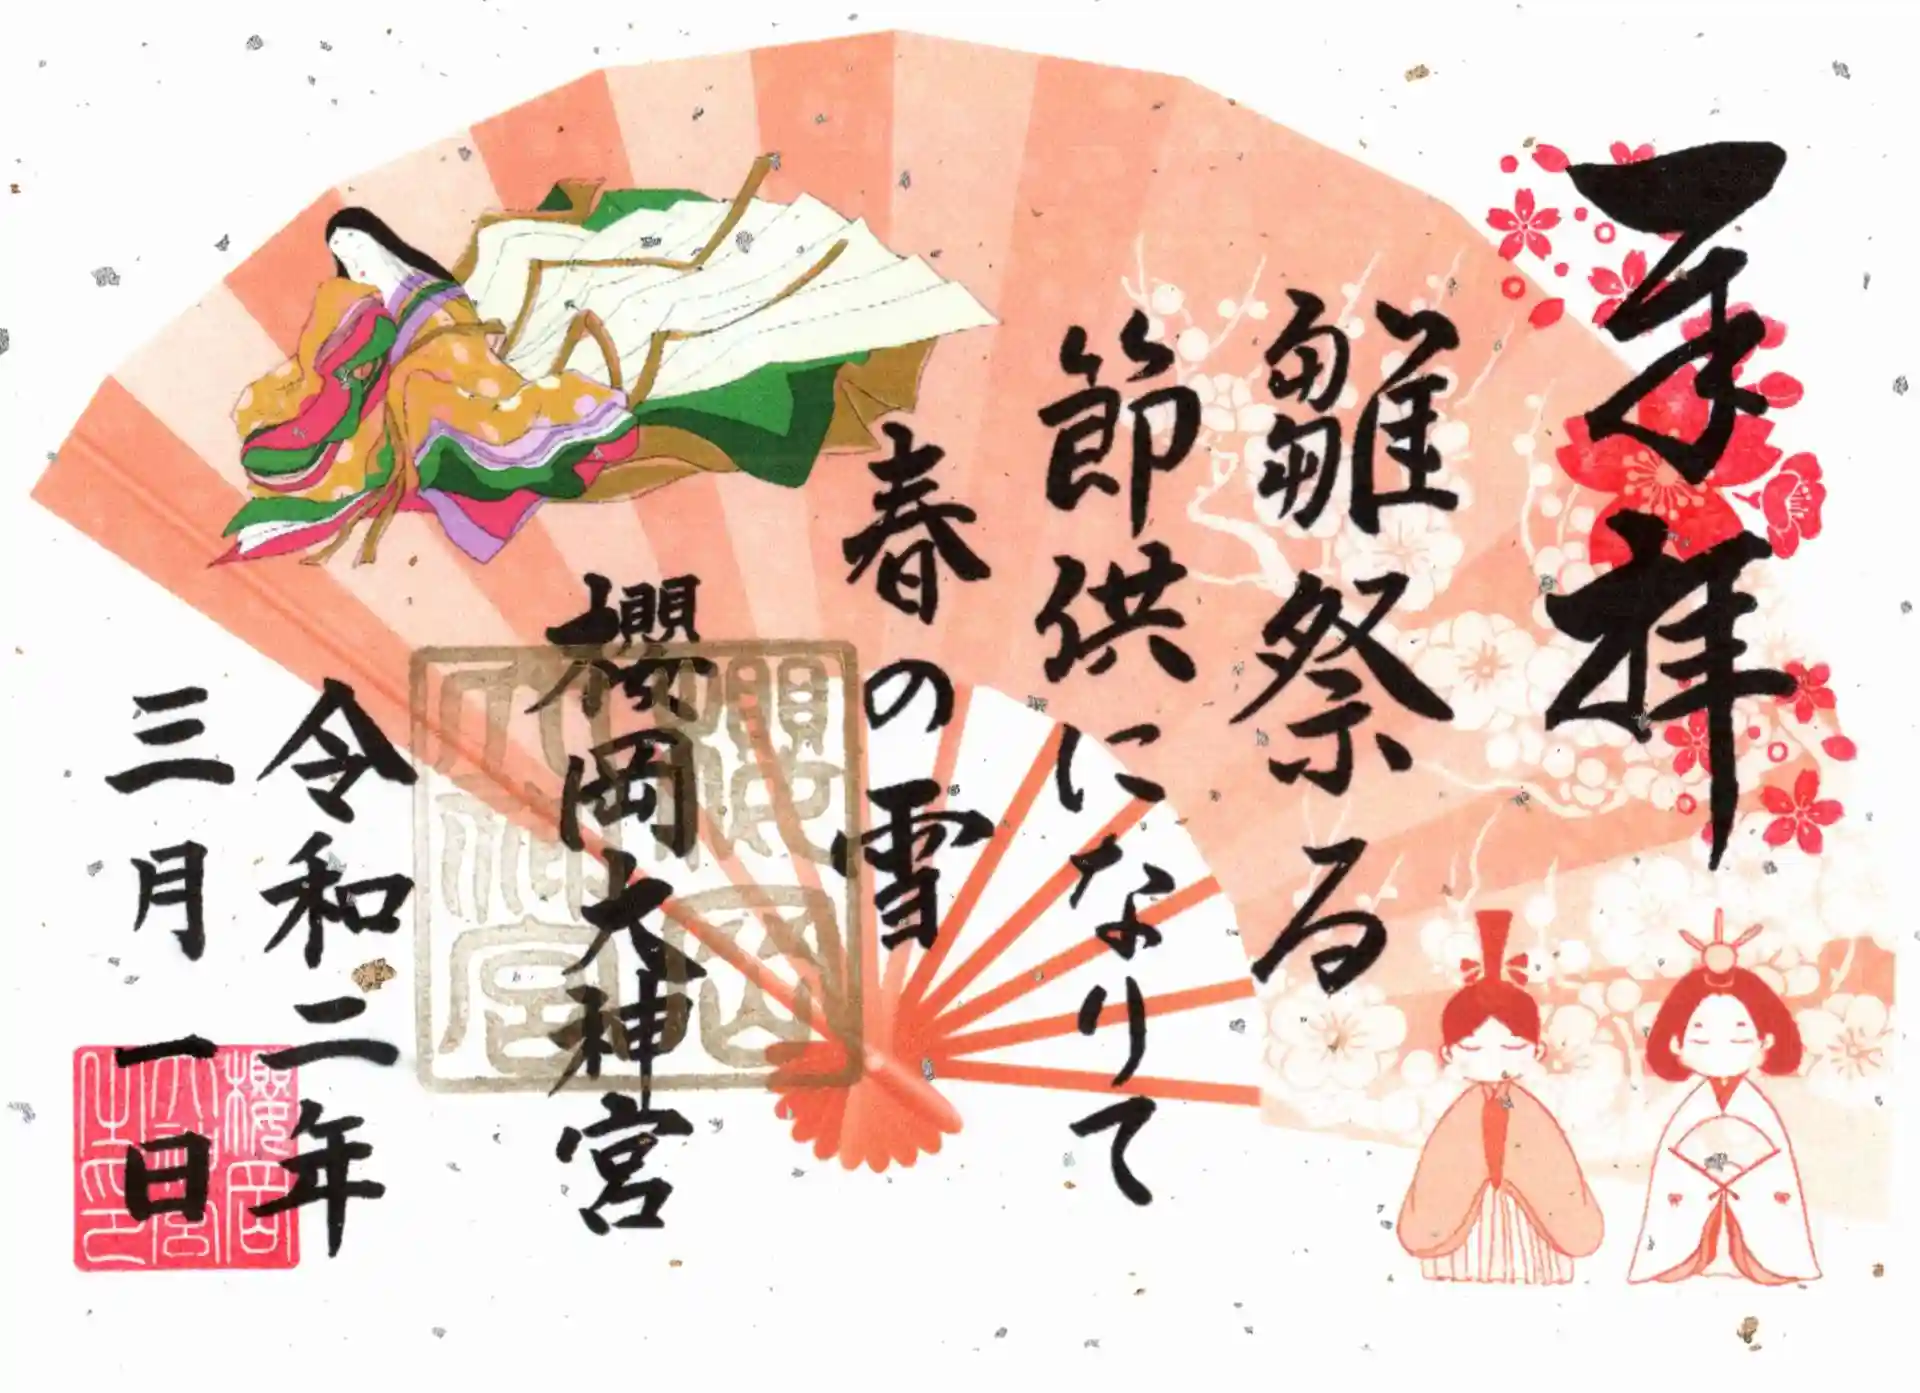 奉拝
雛祭る
節供になりて
春の雪
櫻岡大神宮
令和二年
三月一日
櫻岡
大神宮
櫻岡
大神宮
之印